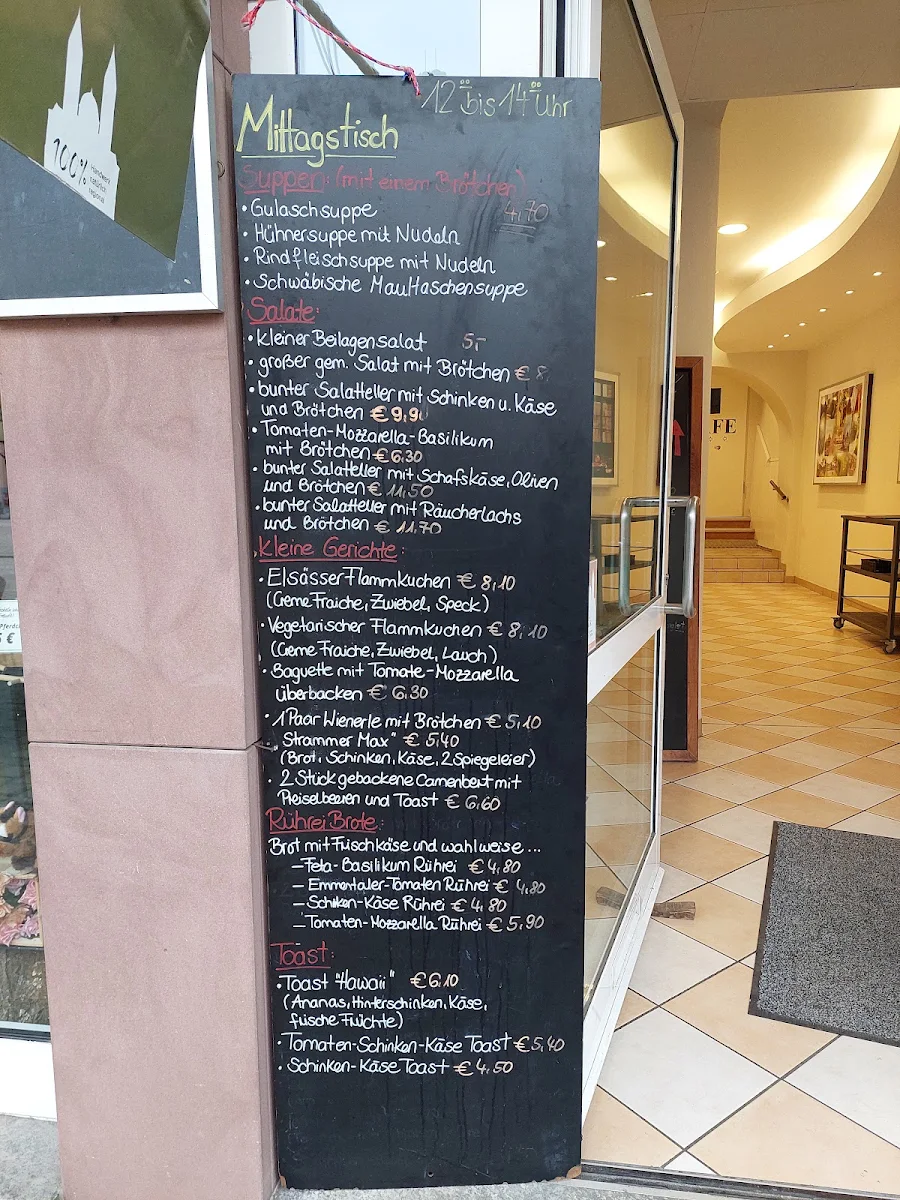 100%
Handwerk
natürlich
regional
12 bis 14 Uhr
Mittagstisch
Suppen: (mit einem Brötchen)
• Gulaschsuppe 4,70
• Hühnersuppe mit Nudeln
• Rindfleischsuppe mit Nudeln
• Schwäbische Maultaschensuppe
Salate:
• kleiner Beilagensalat 5,-
• großer gem. Salat mit Brötchen € 8,
• bunter Salatteller mit Schinken u. Käse
und Brötchen € 9,90
• Tomaten-Mozzarella-Basilikum
mit Brötchen € 6.30
• bunter Salatteller mit Schafskäse, Oliven
und Brötchen € 11,50
• bunter Salatteller mit Räucherlachs
und Brötchen € 11.70
Kleine Gerichte:
• Elsässer Flammkuchen € 8,10
(Creme Fraiche, Zwiebel, Speck)
• Vegetarischer Flammkuchen € 8,10
(Creme Fraiche, Zwiebel, Lauch)
• Baguette mit Tomate-Mozzarella
überbacken € 6.30
• 1 Paar Wienerle mit Brötchen € 5,10
Strammer Max" € 5,40
(Brot, Schinken, Käse, 2 Spiegeleier)
• 2 Stück gebackene Camenbert mit
Preiselbeeren und Toast € 6,60
Rührei Brote:
Brot mit Frischkäse und wahlweise...
– Feta-Basilikum Rührei € 4,80
– Emmentaler-Tomaten Rührei € 4,80
– Schinken-Käse Rührei € 4,80
– Tomaten-Mozzarella Rührei € 5,90
Toast:
• Toast "Hawaii" € 6,10
(Ananas, Hinterschinken, Käse,
frische Früchte)
• Tomaten-Schinken-Käse Toast € 5,40
• Schinken-Käse Toast € 4.50
FE
€